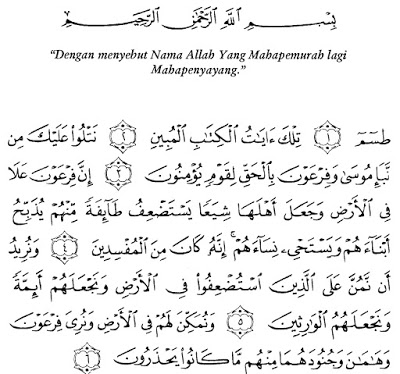 بِسْمِ ٱللَّهِ ٱلرَّحْمَٰنِ ٱلرَّحِيمِ
“Dengan menyebut Nama Allah Yang Mahapemurah lagi
Mahapenyayang.”
طسٓمٓ ١ تِلْكَ ءَايَٰتُ ٱلْكِتَٰبِ ٱلْمُبِينِ ٢ نَتْلُوا۟ عَلَيْكَ مِن
نَّبَإِ مُوسَىٰ وَفِرْعَوْنَ بِٱلْحَقِّ لِقَوْمٍ يُؤْمِنُونَ ٣ إِنَّ فِرْعَوْنَ عَلَا
فِى ٱلْأَرْضِ وَجَعَلَ أَهْلَهَا شِيَعًا يَسْتَضْعِفُ طَآئِفَةً مِّنْهُمْ يُذَبِّحُ
أَبْنَآءَهُمْ وَيَسْتَحْىِۦ نِسَآءَهُمْ ۚ إِنَّهُۥ كَانَ مِنَ ٱلْمُفْسِدِينَ ٤ وَنُرِيدُ
أَن نَّمُنَّ عَلَى ٱلَّذِينَ ٱسْتُضْعِفُوا۟ فِى ٱلْأَرْضِ وَنَجْعَلَهُمْ أَئِمَّةً
وَنَجْعَلَهُمُ ٱلْوَٰرِثِينَ ٥ وَنُمَكِّنَ لَهُمْ فِى ٱلْأَرْضِ وَنُرِىَ فِرْعَوْنَ
وَهَٰمَٰنَ وَجُنُودَهُمَا مِنْهُم مَّا كَانُوا۟ يَحْذَرُونَ ٦